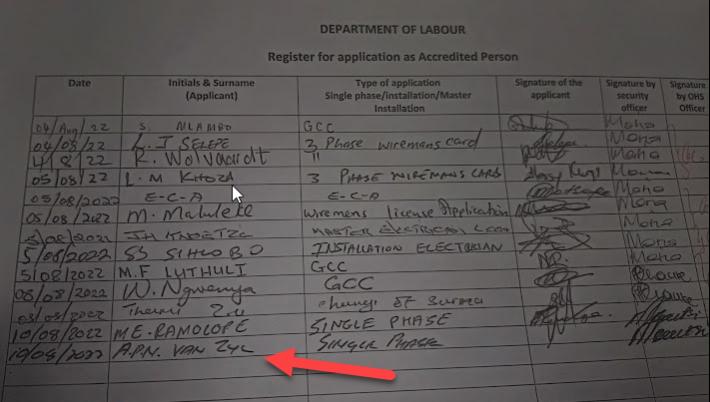 DEPARTMENT OF LABOUR
Register for application as Accredited Person
Date Initials & Surname (Applicant) Type of application Single phase/installation/Master Installation Signature of the applicant Signature by security officer Signature by OHS Officer
04/Aug/22 S. MLAMBO GCC Moha
04/08/22 L.J SELEPE 3 Phase wiremans card Moha
4/8/22 R. Wolvaardt " Moha
05/08/22 L.M KHOZA 3 PHASE WIREMANS CARD
05/08/2022 E-C-A E-C-A Moha
05/08/2022 M. Malulele Wiremens license Application Moha
JH KNOETZE MASTER ELECTRICAL Moha
5/08/2022 SS SIHLOBO INSTALLATION ELECTORIAN Moha
5/08/2022 M.F LUTHULI GCC Moha
08/08/2022 W. Ngwenya GCC
Thermi Zulu change of
10/08/2022 M.E. RAMOLOPE SINGLE PHASE
10/08/2022 A.P.N. VAN ZYL SINGLE PHASE